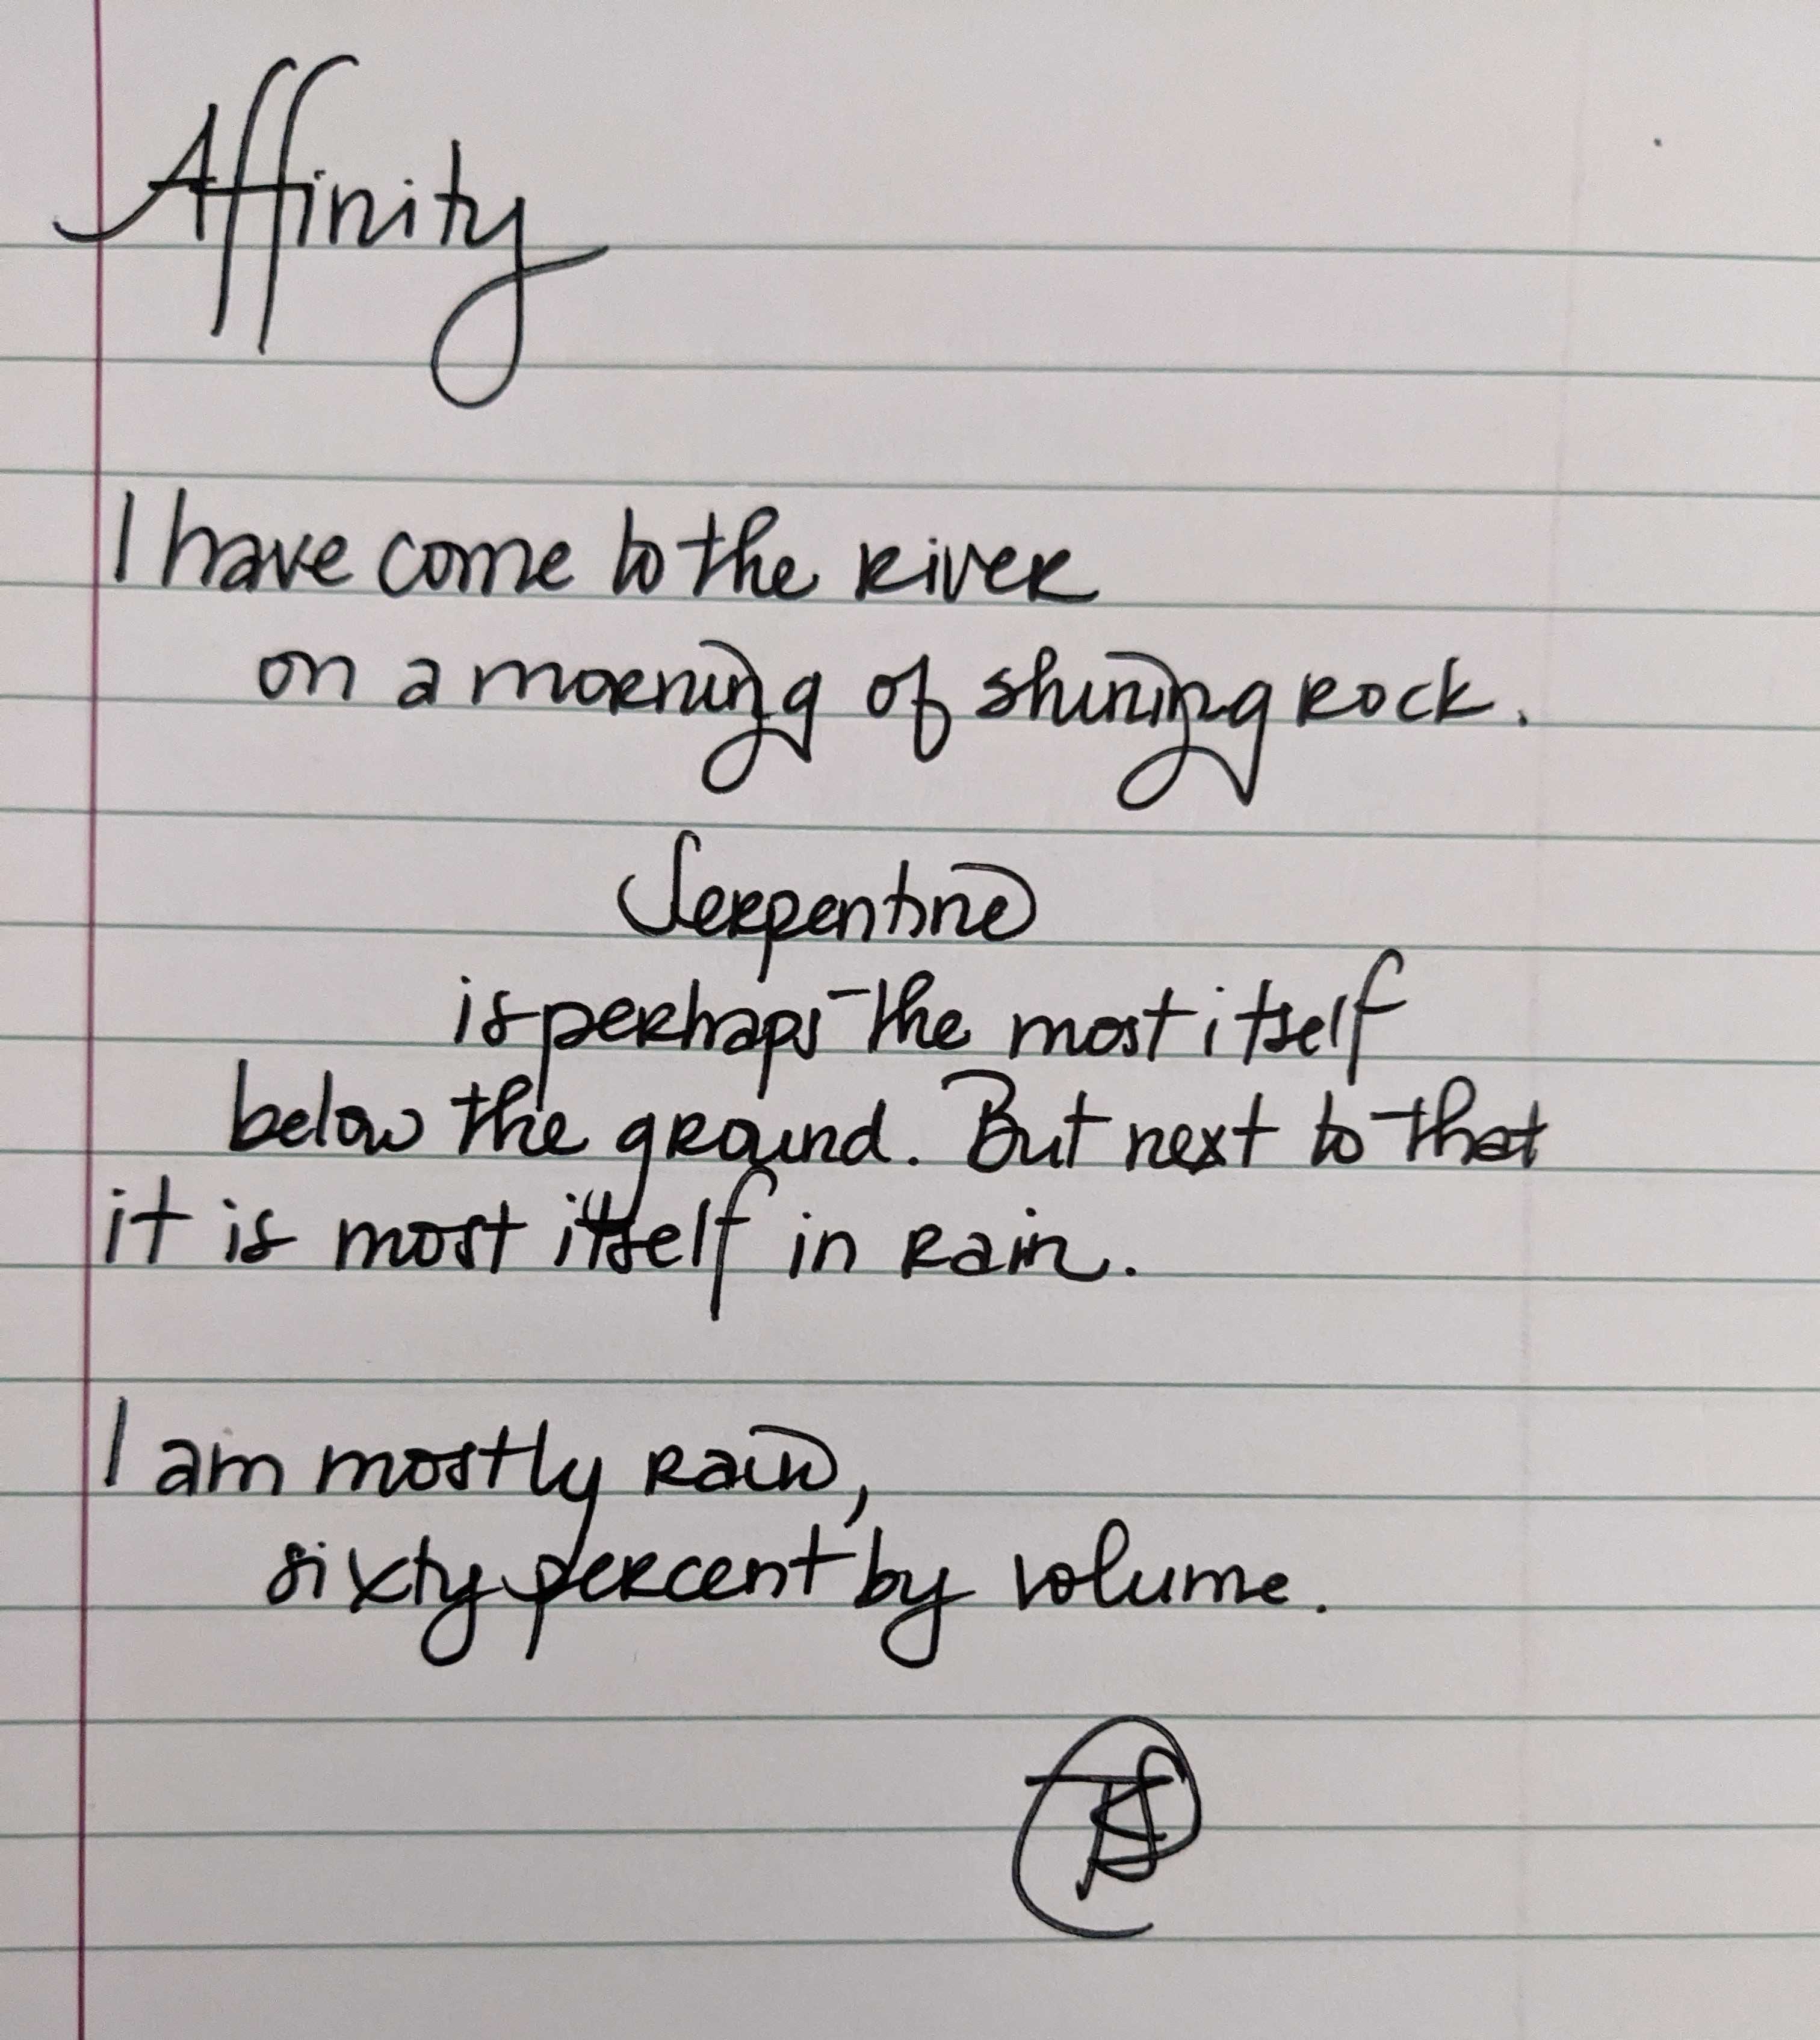 Affinity
I have come to the river
on a morning of shining rock.
Serpentine
is perhaps the most itself
below the ground. But next to that
it is most itself in rain.
I am mostly rain,
sixty percent by volume.